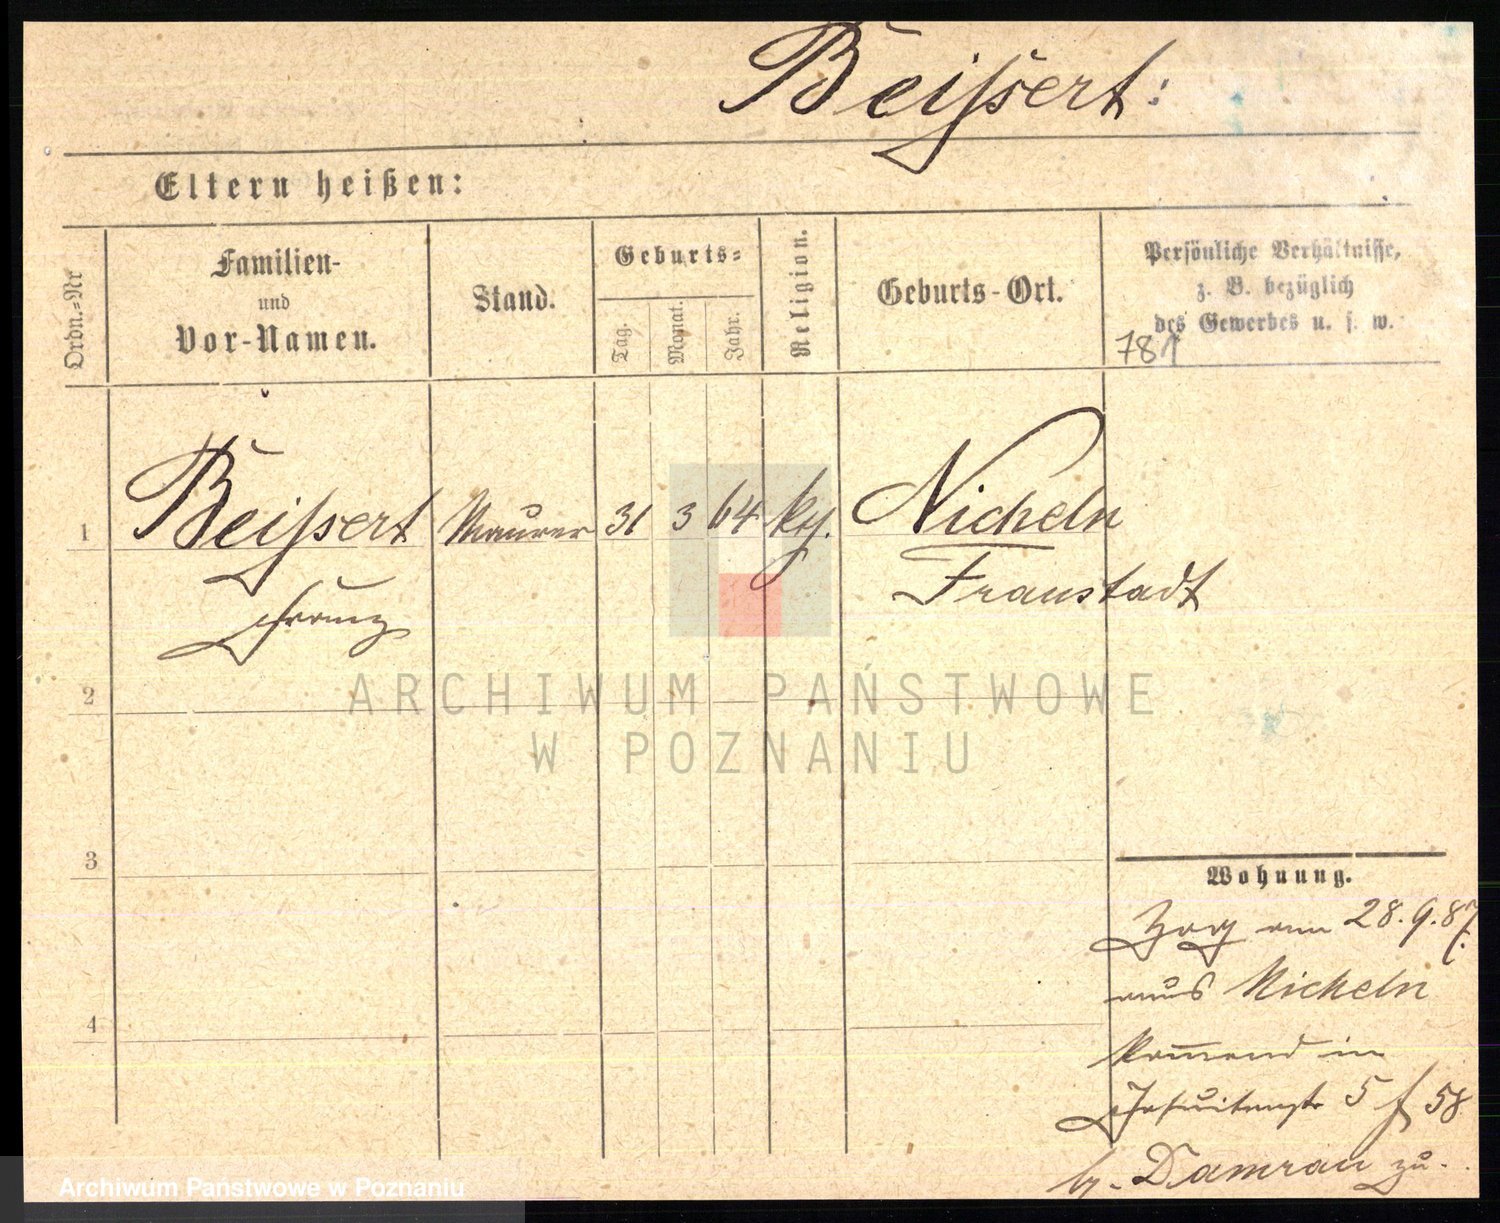 Beißert:
Eltern heißen:
Ordn.=Nr
Familien-
und
Vor-Namen.
Stand.
Geburts=
Tag.
Monat.
Jahr.
Religion.
Geburts-Ort.
Persönliche Verhältnisse,
z. B. bezüglich
des Gewerbes u. s. w.
781
1
Beißert
Franz
Maurer
31
3
64
kth.
Nicheln
Fraustadt
2
3
4
ARCHIWUM PAŃSTWOWE
W POZNANIU
Wohnung.
Zog am 28.9.87.
aus Nicheln
kommend in
Jesuitenstr 5 f 58
b. Damrau zu.
Archiwum Państwowe w Poznaniu